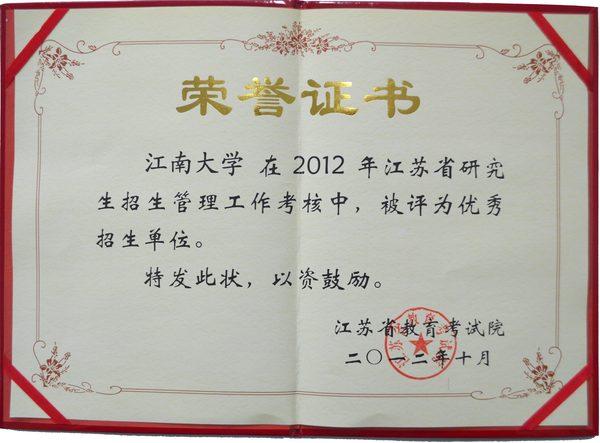 荣誉证书
江南大学 在 2012 年江苏省研究
生招生管理工作考核中，被评为优秀
招生单位。
特发此状，以资鼓励。
江苏省教育考试院
二〇一二年十月